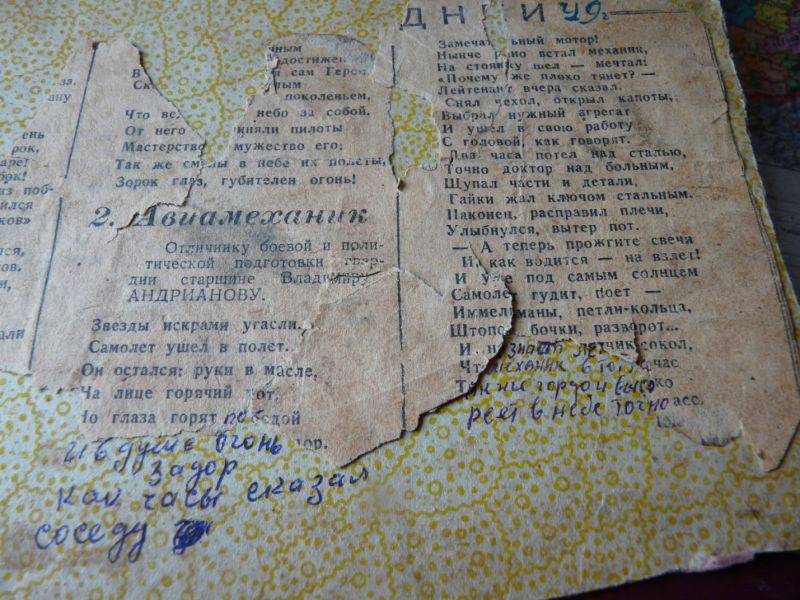 ДНИ 49г
за.
ану
ень
рок,
аре!
бок!
аз поб-
ился
ков»
ся,
ов.
и,
али
ным
достижен
В сам Геро
Ск лым
поколеньем,
Что вс небо за собой.
От него иняли пилоты
Мастерство мужество его;
Так же смелы в небе их полеты,
Зорок глаз, губителен огонь!
2. Авиамеханик
Отличнику боевой и поли-
тической подготовки гвар-
дии старшине Владимиру
АНДРИАНОВУ.
Звезды искрами угасли,
Самолет ушел в полет.
Он остался: руки в масле,
На лице горячий пот,
Но глаза горят победой
И в душе огонь ор.
задор
Как часы сказал
соседу
Замечательный мотор!
Нынче рано встал механик,
На стоянку шел — мечтал:
«Почему же плохо тянет? —
Лейтенант вчера сказал.
Снял чехол, открыл капоты,
Выбрал нужный агрегат
И ушел в свою работу
С головой, как говорят.
Два часа потел над сталью,
Точно доктор над больным,
Щупал части и детали,
Гайки жал ключом стальным.
Наконец, расправил плечи,
Улыбнулся, вытер пот.
— А теперь прожгите свечи
И, как водится — на взлет!
И уже под самым солнцем
Самолет гудит, поет —
Иммельманы, петли-кольца,
Штопор, бочки, разворот...
И знает летчик-сокол,
Чт механик в тот час
Так же гордой высоко
реет в небе точно асс.